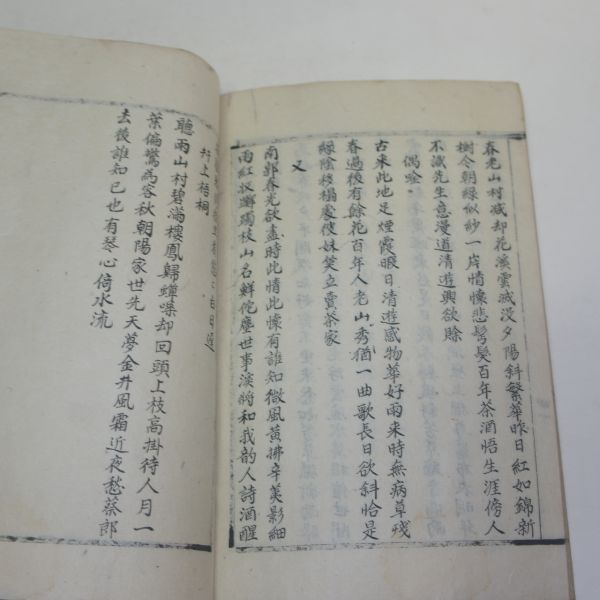 春老山村减却花溪雲滅没夕陽斜繁華昨日紅如錦新
樹今朝綠似紗一岸情懷悲髩髮百年茶酒悟生涯傍人
不識先生意漫道清遊興欲賒
偶唫
古来此地足煙霞暇日清遊感物華好雨来時無病草残
春過後有餘花百年人老山秀猶一曲歌長日欲斜恰是
綠陰移榻處彼妹笑立賣茶家
又
南郭春光欲盡時此情此懷有誰知微風黄拂辛荑影細
雨紅扶躑躅枝山名鮮侂塵世事淡將和我韵人詩酒醒
村上梧桐
聽雨山村碧滿樓鳳歸蟬噪却回頭上枝高掛待人月一
葉偏驚為客秋朝陽家世先天夢金井風霜近夜愁蔡郎
去後誰知已也有琴心倚水流